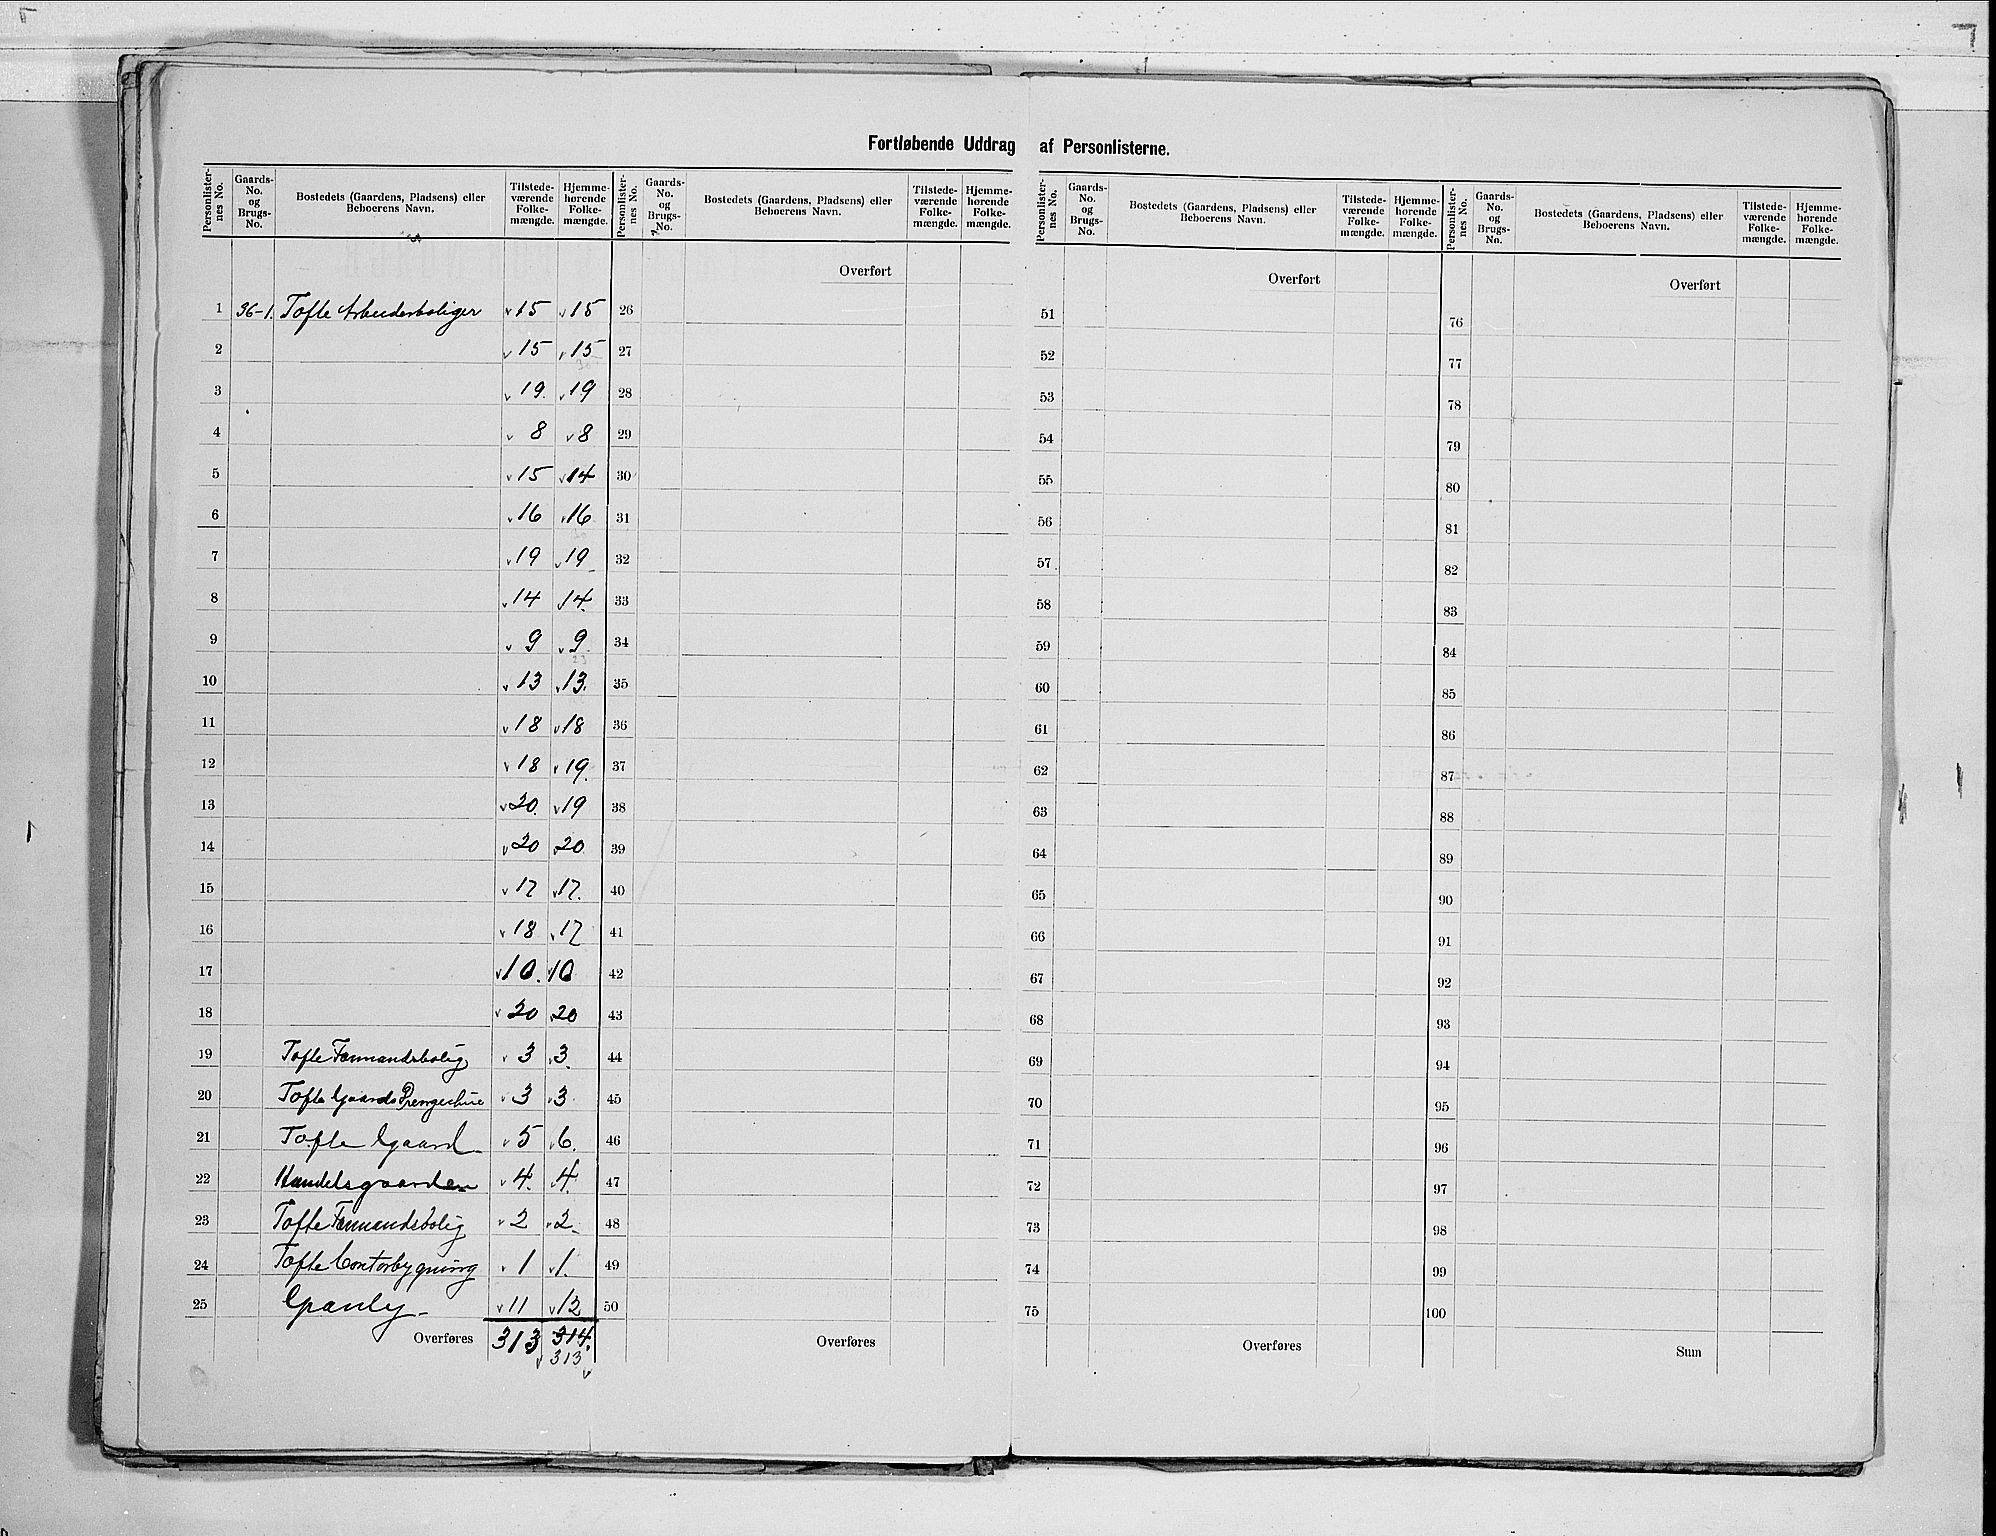 Fortløbende Uddrag af Personlisterne.
Personlister-nes No. Gaards-No. og Brugs-No. Bostedets (Gaardens, Pladsens) eller Beboerens Navn. Tilstede-værende Folke-mængde. Hjemme-hørende Folke-mængde.
Personlister-nes No. Gaards-No. og Brugs-No. Bostedets (Gaardens, Pladsens) eller Beboerens Navn. Tilstede-værende Folke-mængde. Hjemme-hørende Folke-mængde.
Personlister-nes No. Gaards-No. og Brugs-No. Bostedets (Gaardens, Pladsens) eller Beboerens Navn. Tilstede-værende Folke-mængde. Hjemme-hørende Folke-mængde.
Personlister-nes No. Gaards-No. og Brugs-No. Bostedets (Gaardens, Pladsens) eller Beboerens Navn. Tilstede-værende Folke-mængde. Hjemme-hørende Folke-mængde.
Overført Overført Overført
1 96-1. Tofte Arbeiderboliger v 15 v 15 26 51 76
2 v 15 v 15 27 52 77
3 v 19. v 19 28 53 78
4 v 8 v 8 29 54 79
5 v 15 v 14 30 55 80
6 v 16 v 16 31 56 81
7 v 19 v 19 32 57 82
8 v 14 14. 33 58 83
9 v 9 v 9. 34 59 84
10 v 13 v 13. 35 60 85
11 v 18 v 18 36 61 86
12 v 18 v 19. 37 62 87
13 v 20. v 19 38 63 88
14 v 20 v 20 39 64 89
15 v 17 v 17. 40 65 90
16 v 18 v 17 41 66 91
17 v 10. v 10 42 67 92
18 v 20 20 43 68 93
19 Tofte Formandsbolig v 3 v 3. 44 69 94
20 Tofte Gaards v 3 v 3 45 70 95
21 Tofte Gaard v 5 v 6. 46 71 96
22 Handelsgaarden v 4. v 4. 47 72 97
23 Tofte Formandsbolig v 2 v 2 48 73 98
24 Tofte Contorbygning v 1 v 1. 49 74 99
25 v 11 v 12 50 75 100
Overføres 313 314. Overføres Overføres Sum
v 313 v